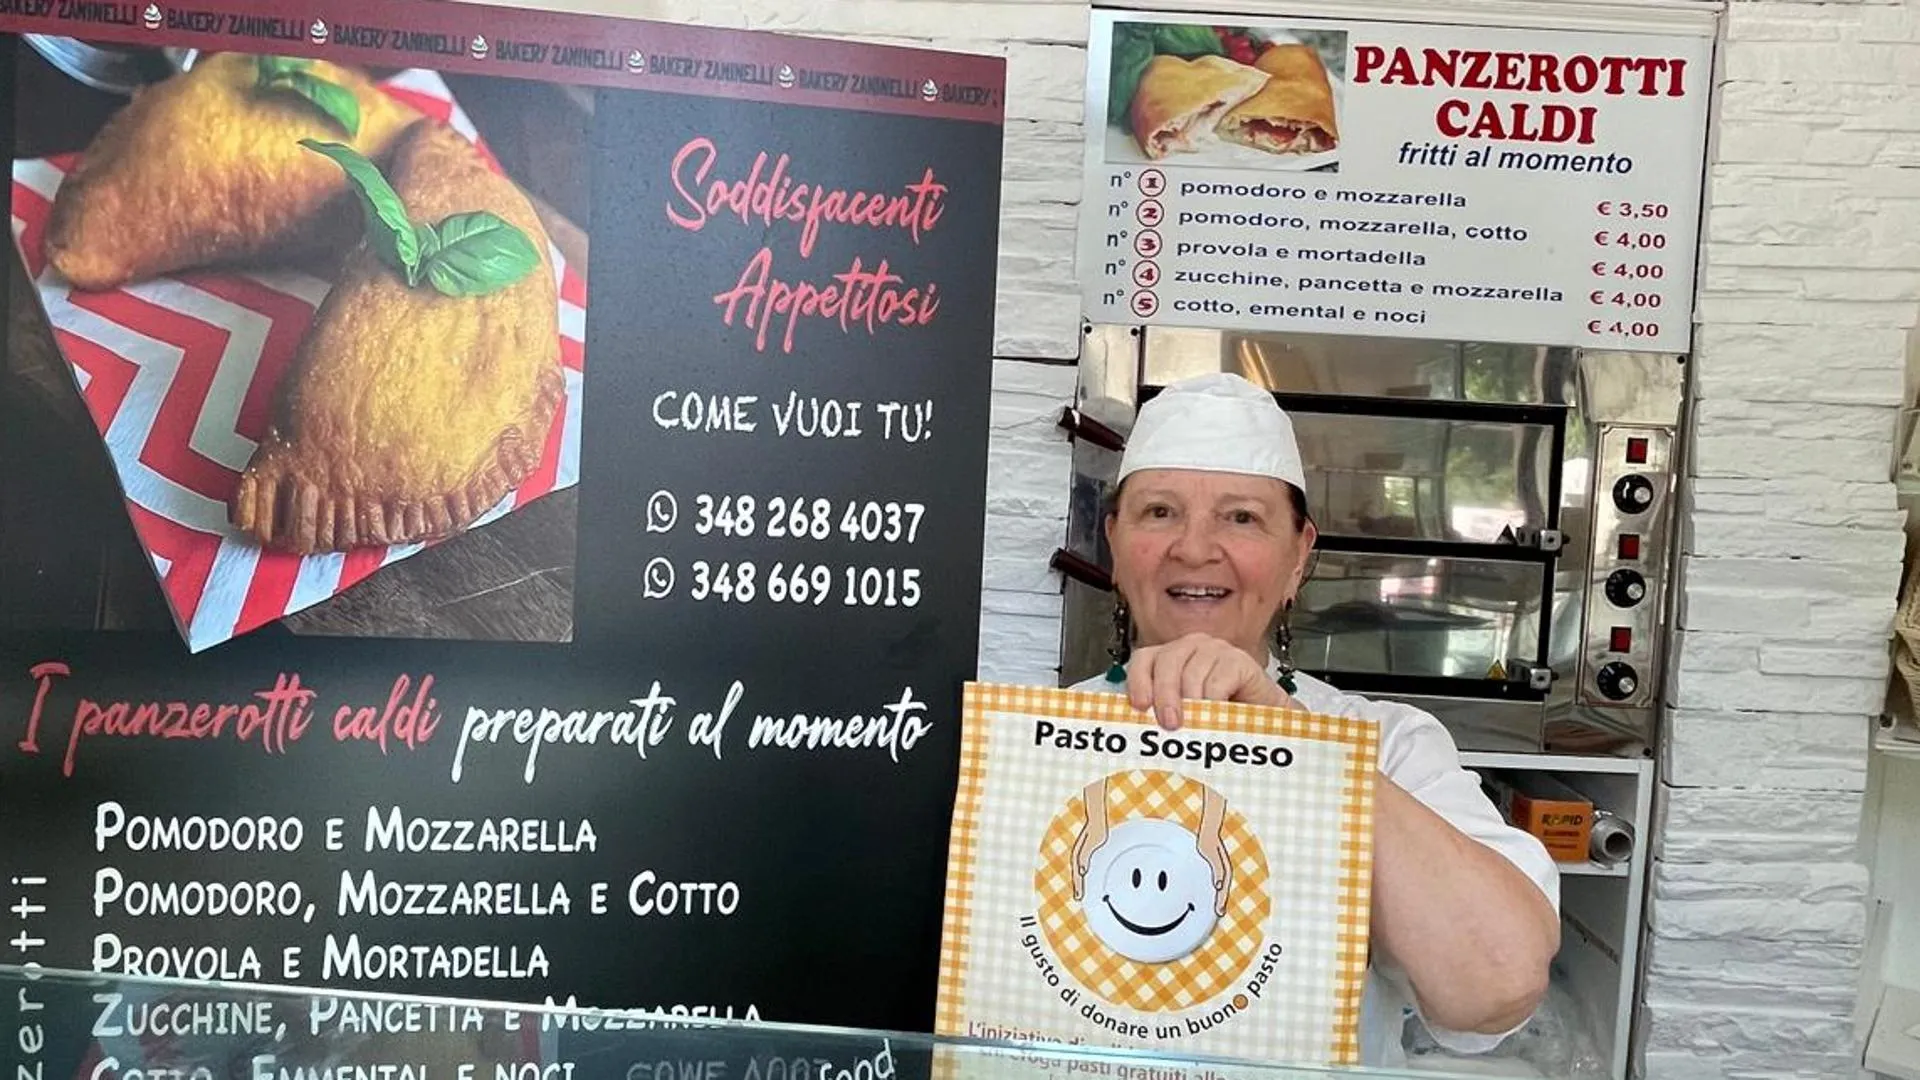 BAKERY ZANINELLI BAKERY ZANINELLI BAKERY ZANINELLI BAKERY ZANINELLI BAKERY ZANINELLI BAKERY ZANINELLI BAKERY
Soddisfacenti
Appetitosi
COME VUOI TU!
348 268 4037
348 669 1015
I panzerotti caldi preparati al momento
POMODORO E MOZZARELLA
POMODORO, MOZZARELLA E COTTO
PROVOLA E MORTADELLA
ZUCCHINE, PANCETTA E MOZZARELLA
COTTO, EMMENTAL E NOCI
PANZEROTTI
CALDI
fritti al momento
n° 1 pomodoro e mozzarella € 3,50
n° 2 pomodoro, mozzarella, cotto € 4,00
n° 3 provola e mortadella € 4,00
n° 4 zucchine, pancetta e mozzarella € 4,00
n° 5 cotto, emental e noci € 4,00
Pasto Sospeso
Il gusto di donare un buono pasto
L'iniziativa
pasti gratuiti
RAPID